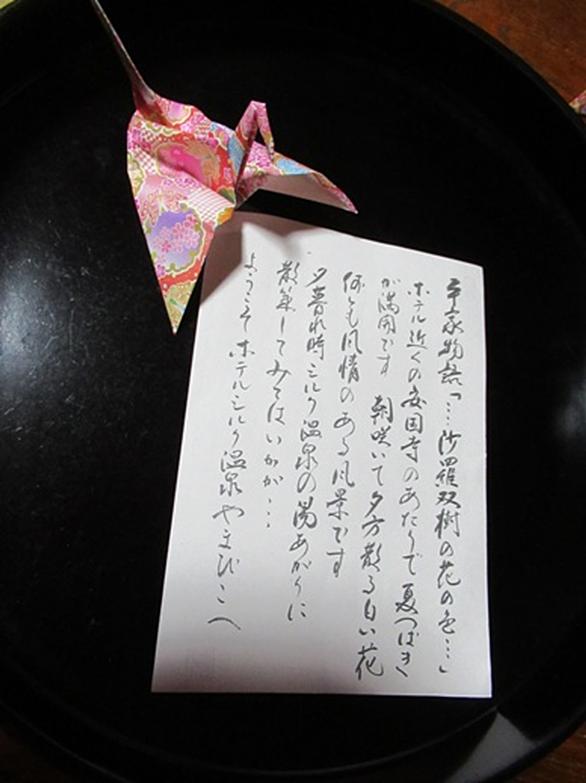 平家物語「…沙羅双樹の花の色…」
ホテル近くの安国寺のあたりで 夏つばき
が満開です 朝咲いて夕方散る白い花
何とも風情のある風景です
夕暮れ時ミルク温泉の湯あがりに
散策してみてはいかが…
ようこそ ホテルミルク温泉やまびこへ